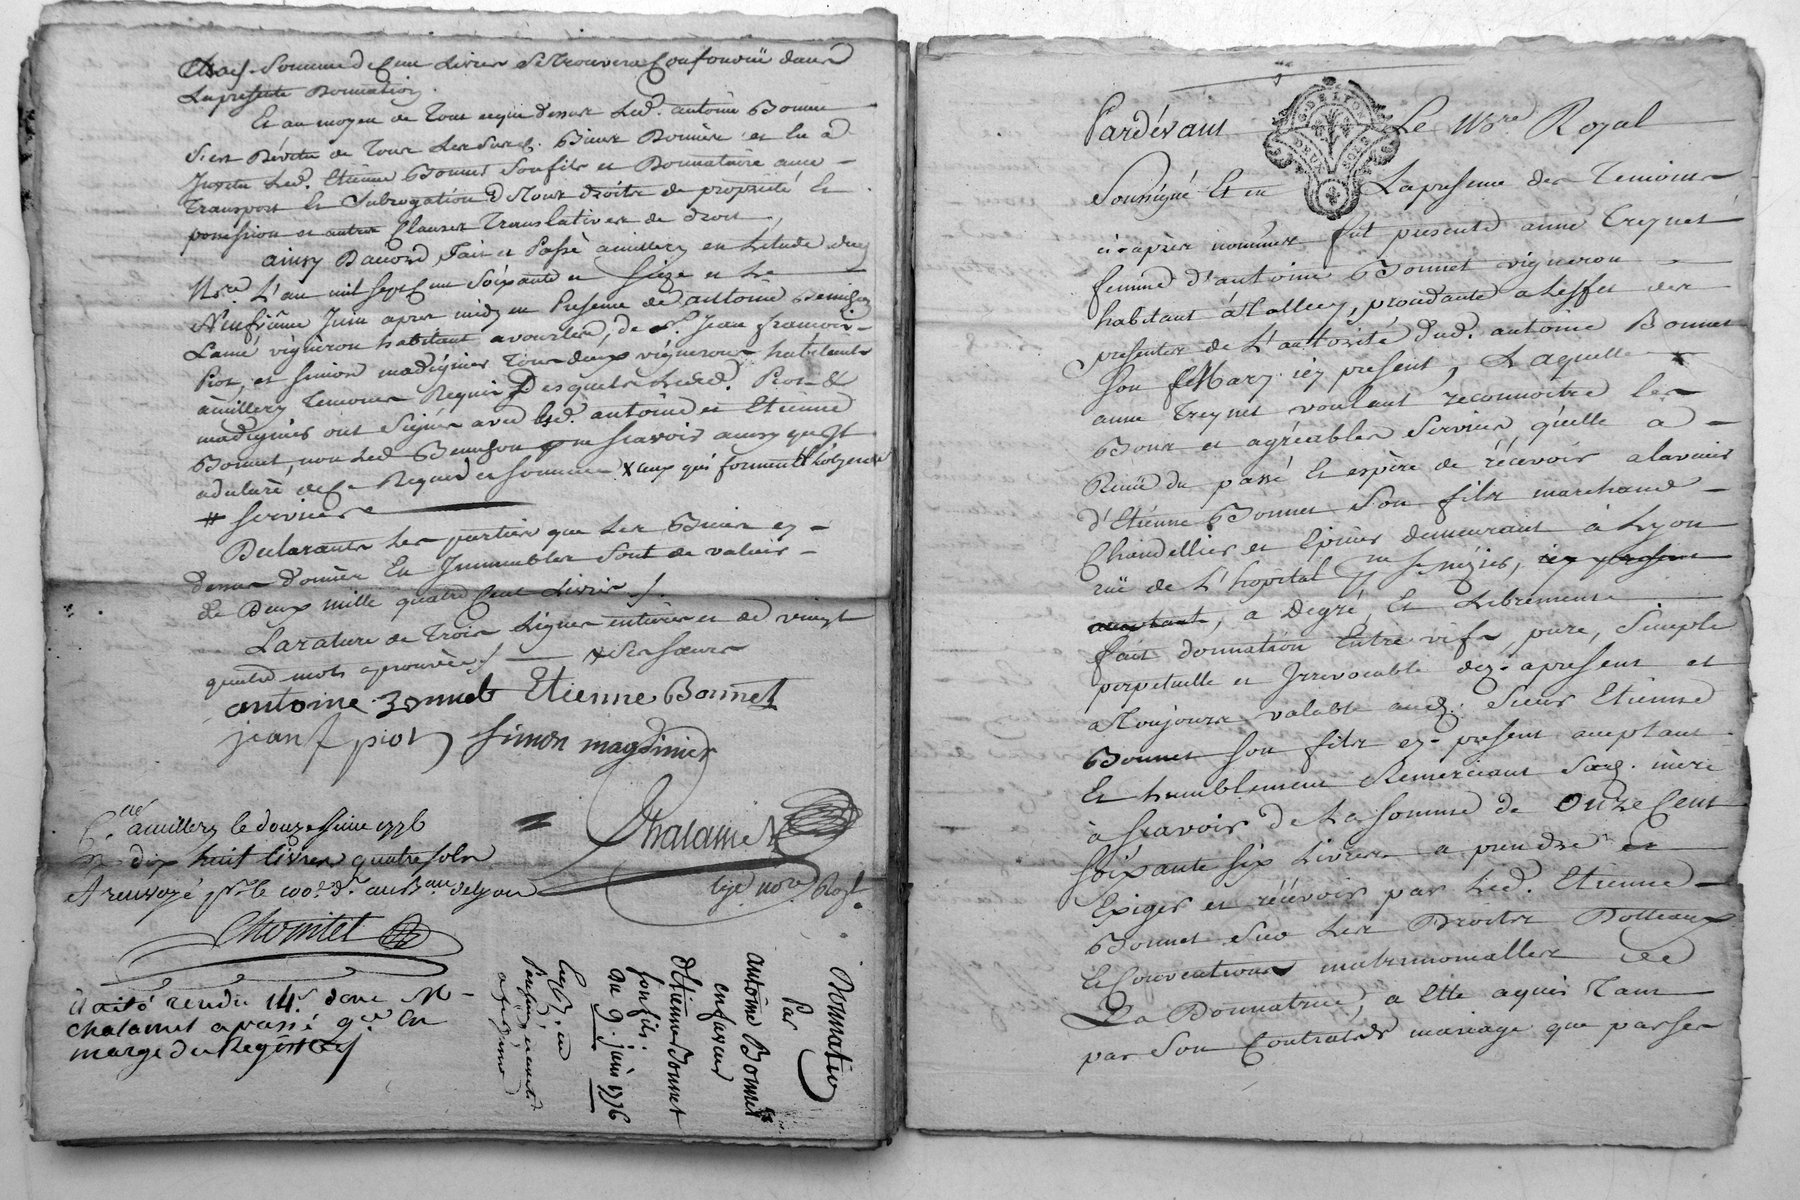 somme de Cent Livres se trouvera Confondüe dans
La presente Donnation
Et au moyen de tout ce que dessus Led. antoine Bonnet
s'est Dévetu de tous Les susd. Biens Donnés et en a
Investu Led. Etienne Bonnet son fils et Donnataire avec
Transport Et Subrogation de tous droits de propriété Et
possession et autres Clauses Translatives de droit,
ainsy Daccord, fait et Passé a millery en Letude dud
Nre. L'an mil sept Cent soixante et seize et Le
Neufvième Juin apres midy en Presence de antoine
Lainé vigneron habitant a vourles, de Sr. Jean françois
Piot, et simon madignier tous deux vignerons habitants
a millery temoins Requis Desquels Lesd. Piot &
madignier ont signés avec Led. antoine et Etienne
Bonnet, non Led pour ne scavoir ainsy quil
a declaré de Ce Requis et sommé x ceux qui forment
# serviere
Declarants Les parties que Les Biens cy
dessus donnés En Immeubles sont de valeur
de Deux mille quatre Cent Livres ./.
La rature de trois Lignes entieres et de vingt
quatre mots aprouvée ./. x ses soeurs
antoine Bonnet Etienne Bonnet
jean f piot simon magdinier
Chalamet
nore. Royl.
Cné a millery le douze juin 1776
R dix huit livres quatre sols
et renvoyé pr. le 100e. dr. au Bau delyon
Chomitel
il a été rendu 14s. dont Mr
chalamet a passé qce. En
marge du Registre
Donnation
Par
antoine Bonnet
en faveur
d'Etienne Bonnet
son fils.
du 9. juin 1776
G. DE LYON
DEUX SOLS
Pardevant Le Nore. Royal
Soussigné Et en La presence des temoins
cy après nommés fut presente anne Treynet
femme d'antoine Bonnet vigneron
habitant à tallecy, procedante a Leffet des
presentes de L'autorité dud. antoine Bonnet
son Mary icy present, Laquelle
anne Treynet voulant reconnoitre les
Bons et agréables services quelle a
Recüe du passé Et espère de récevoir a lavenir
d'Etienne Bonnet son fils marchand
Chandellier et Epicier demeurant à Lyon
rüe de L'hopital , icy present
acceptant, a Degré Et Librement
fait donnation Entre vifs, pure, Simple
perpetuelle et Irrevocable des-apresent et
a toujours valable aud. Sieur Etienne
Bonnet son fils cy-present acceptant
Et humblement Remerciant sad. mère
à scavoir de La somme de Onze Cent
soixante six Livres a prendre
Exiger et récevoir par Led. Etienne
Bonnet sur Les Droits Dotteaux
Et Conventions matrimonialles de
La Donnatrice, a Elle aquis tant
par son Contrat de mariage que par ses